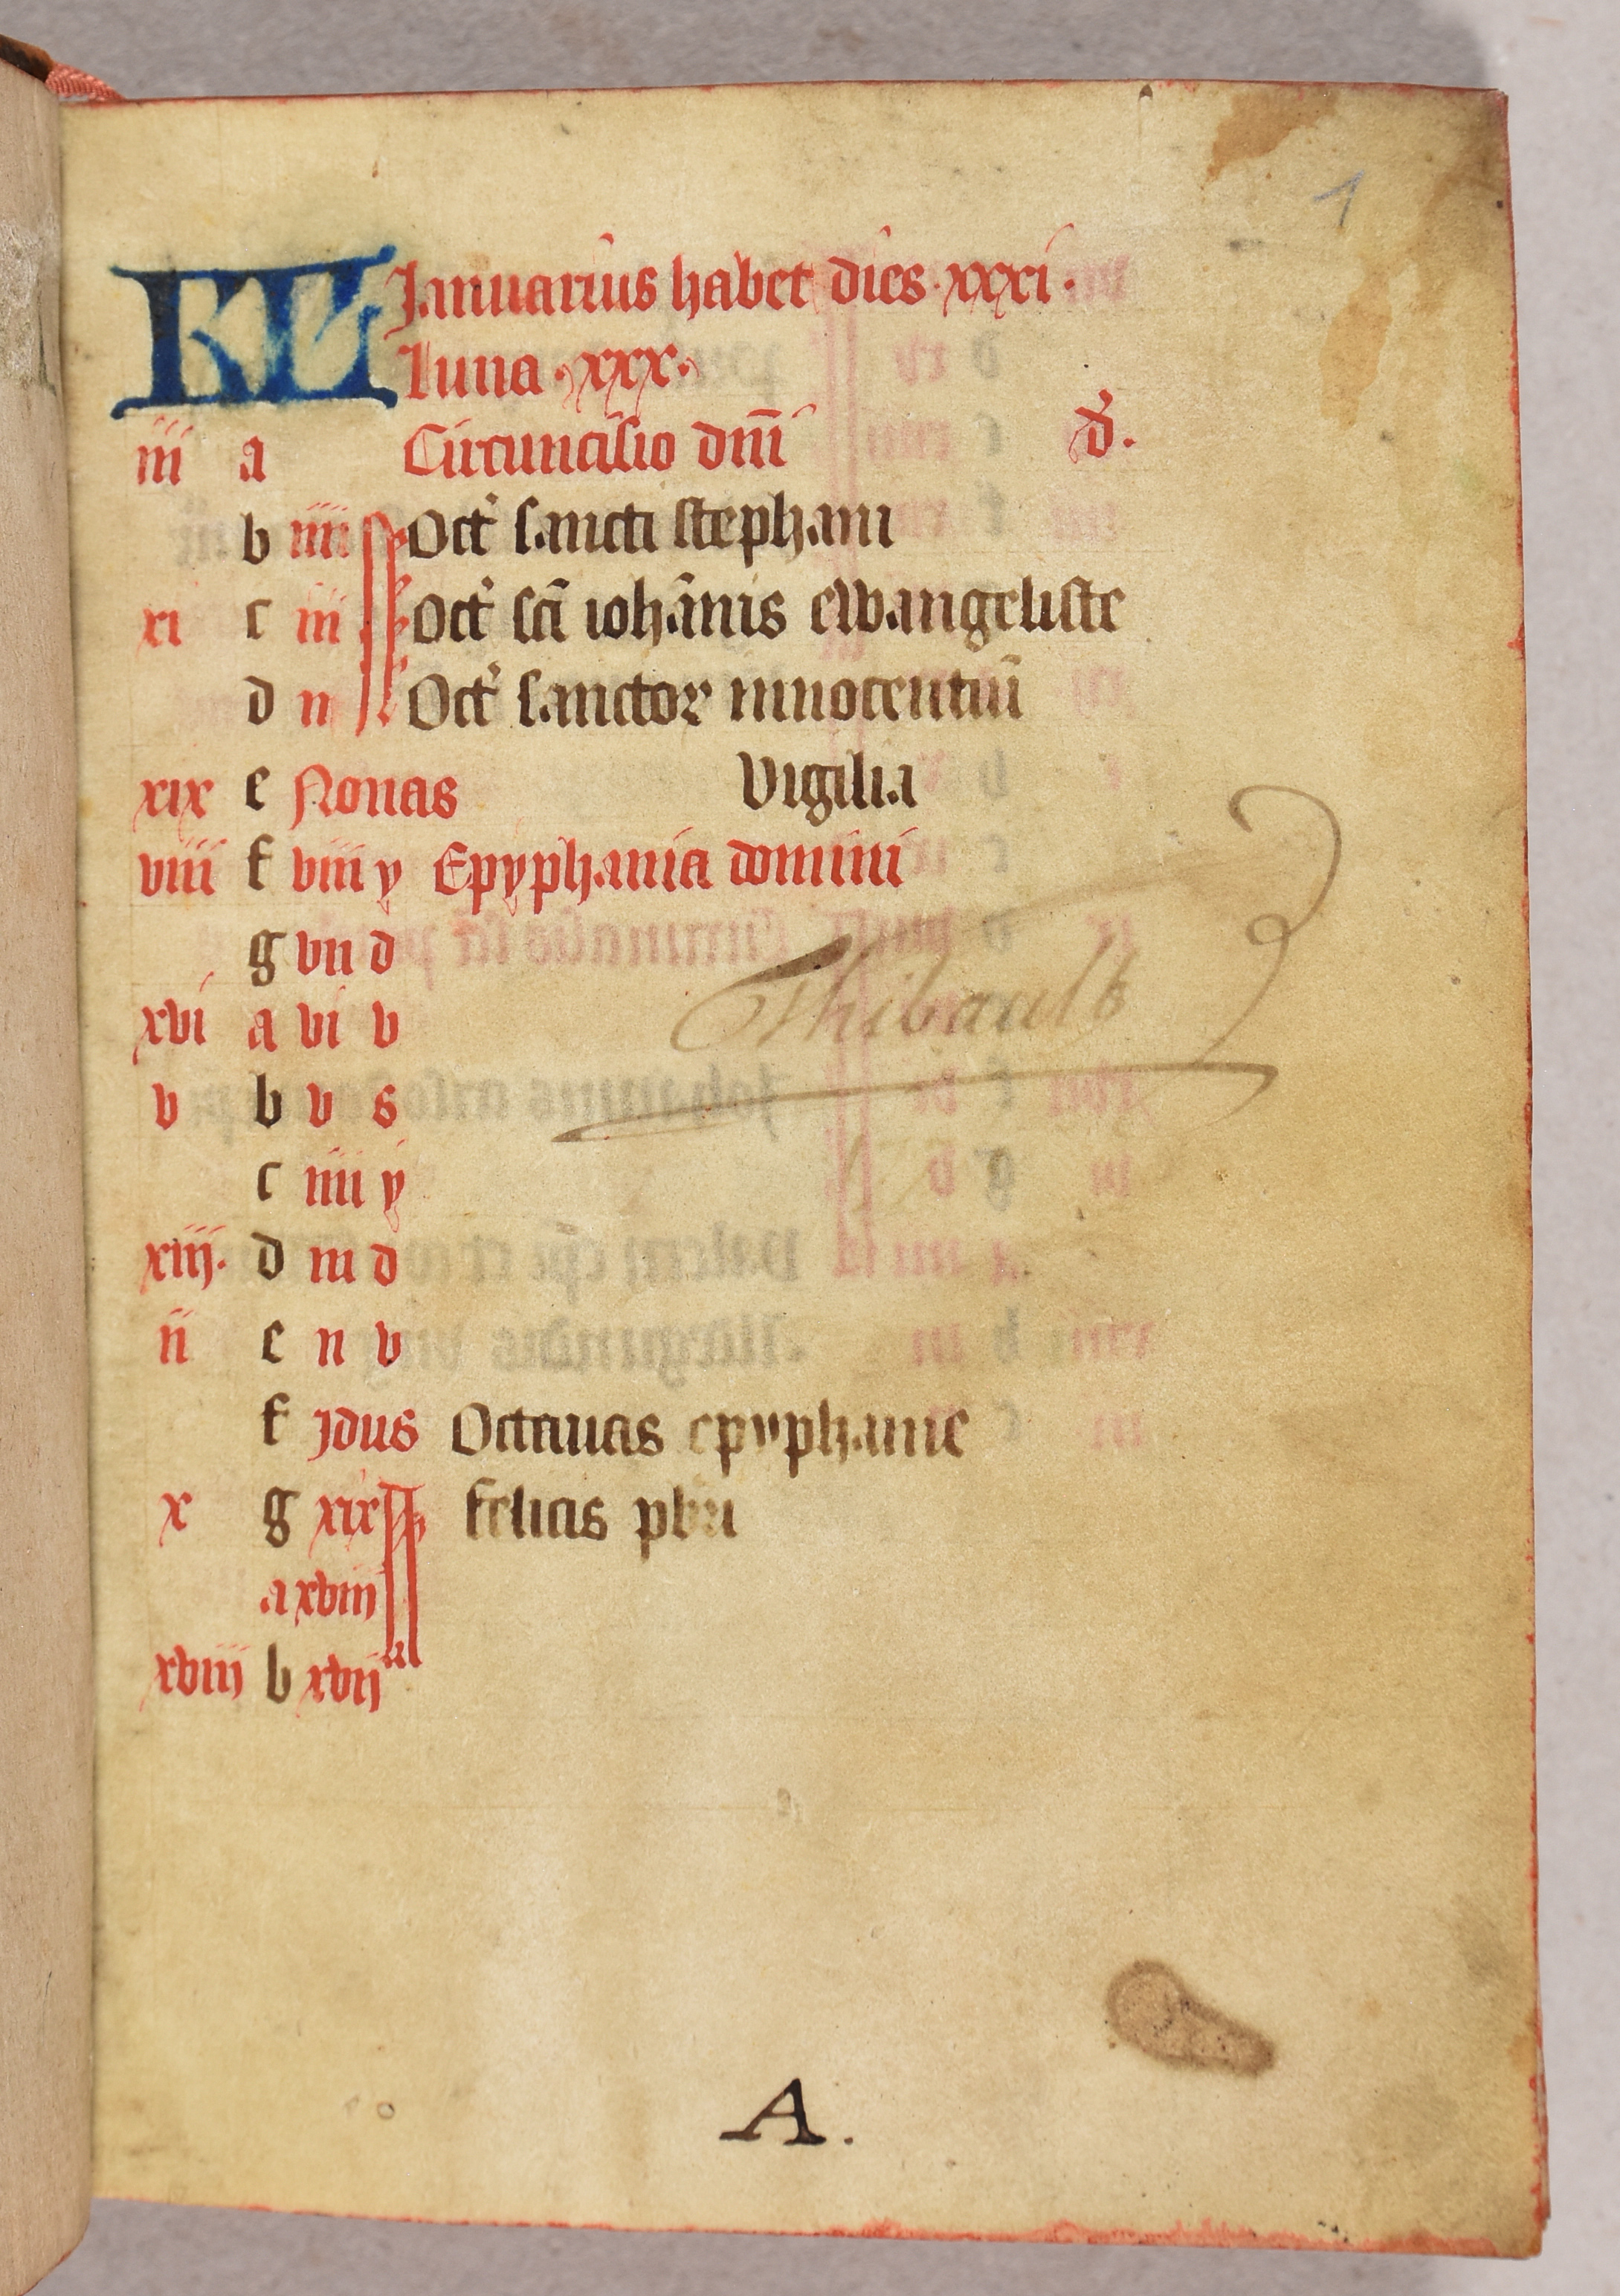 1
KL Januarius habet dies xxxi.
Luna .xxx.
iii a Circuncisio dnī d.
b iiii Oct' sancti stephani
xi c iii Oct' scī iohānis ewangeliste
d ii Oct' sanctor innocentiū
xix e Nonas Vigilia
viii f viii y Epyphania domini
g vii d
xvi a vi v Thibault
v b v s
c iiii y
xiii. d iii d
ii e ii v
f ydus Octauas epyphanie
x g xix felicis pbri
a xviii
xviii b xvii
A.